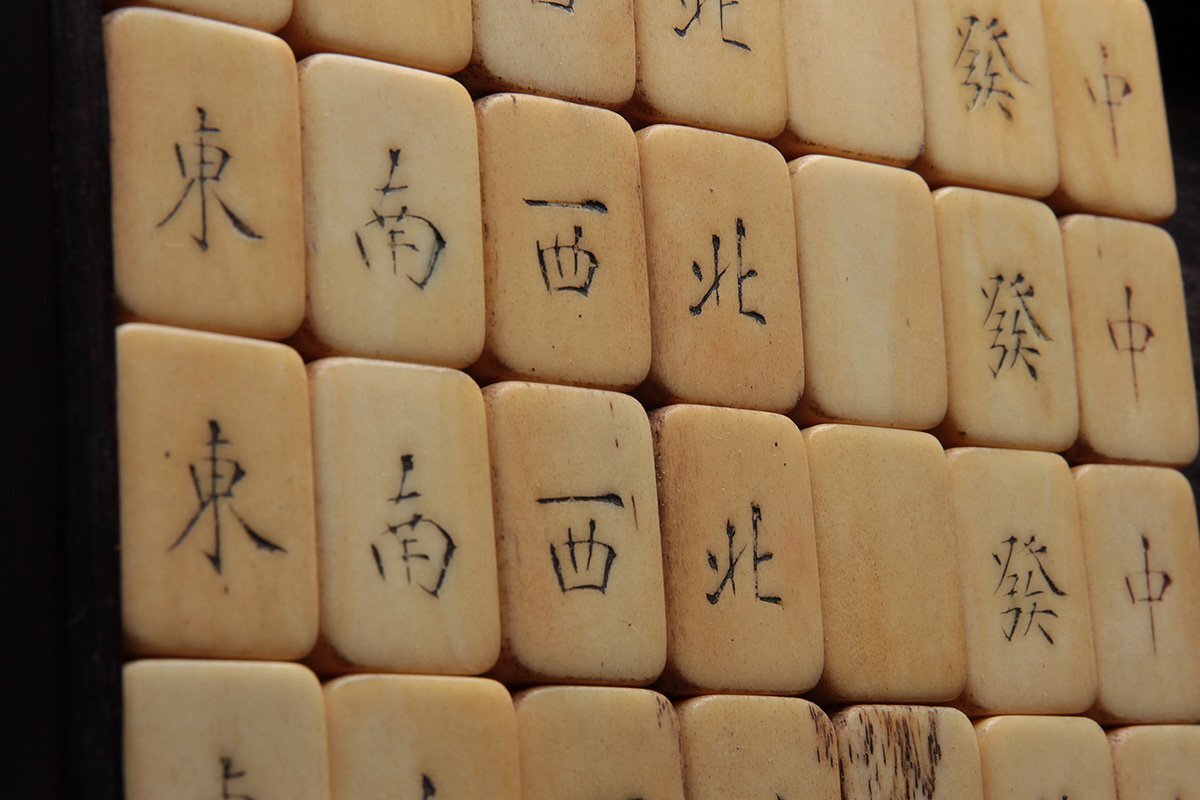 北 發 中
東 南 西 北 發 中
東 南 西 北 發 中